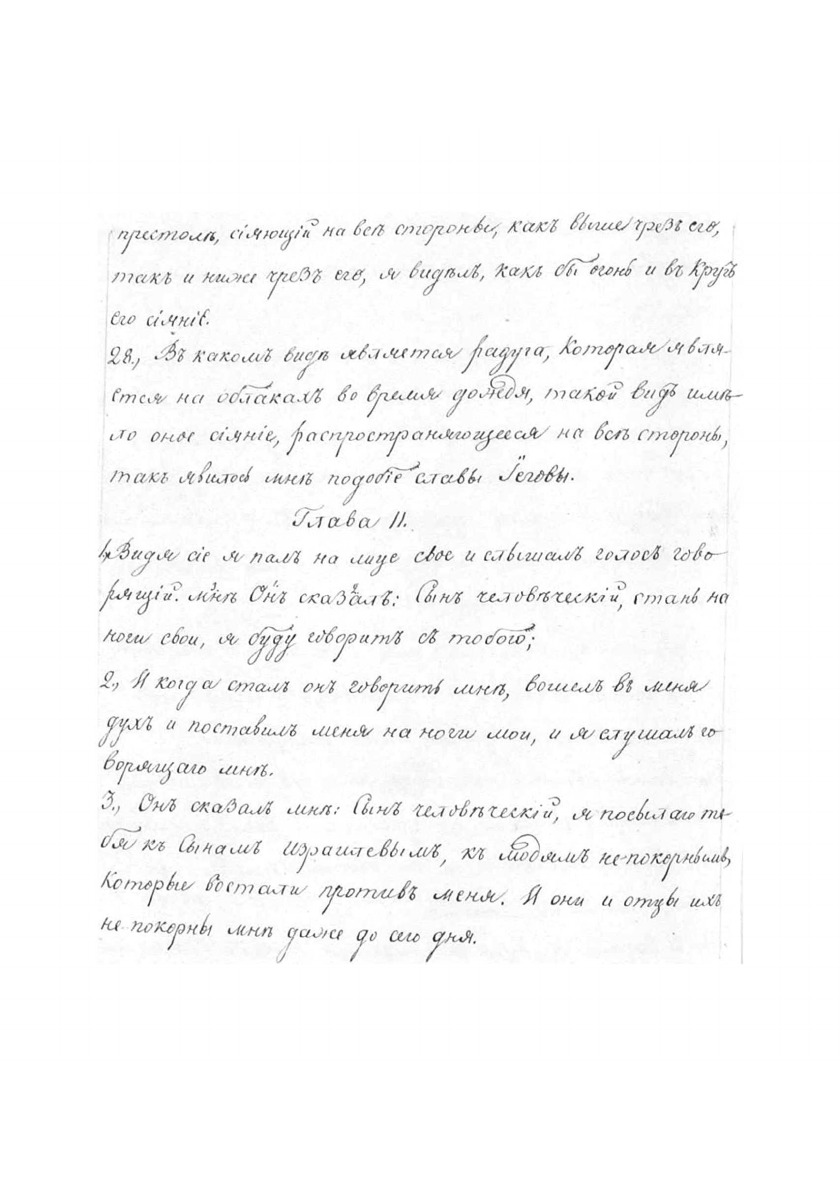 престолъ, сіяющій на всѣ стороны, какъ выше чрезъ его,
такъ и ниже чрезъ его, я видѣлъ, какъ бы огонь и въ кругъ
его сіяніе.
28., Въ какомъ видѣ является радуга, которая явля-
ется на облакахъ во время дождя, такой видъ имѣ-
ло оное сіяніе, распространяющееся на всѣ стороны,
такъ явилось мнѣ подобіе славы Іеговы.
Глава II.
1, Видя сіе я палъ на лице свое и слышалъ голосъ гово-
рящій. мнѣ Онъ сказалъ: Сынъ человѣческій, стань на
ноги свои, я буду говорить съ тобою;
2., И когда сталъ онъ говорить мнѣ, вошелъ въ меня
духъ и поставилъ меня на ноги мои, и я слушалъ го
ворящаго мнѣ.
3., Онъ сказалъ мнѣ: Сынъ человѣческій, я посылаю те-
бя къ Сынамъ Израилевымъ, къ людямъ не покорнымъ,
которые востали противъ меня. И они и отцы ихъ
не покорны мнѣ даже до сего дня.